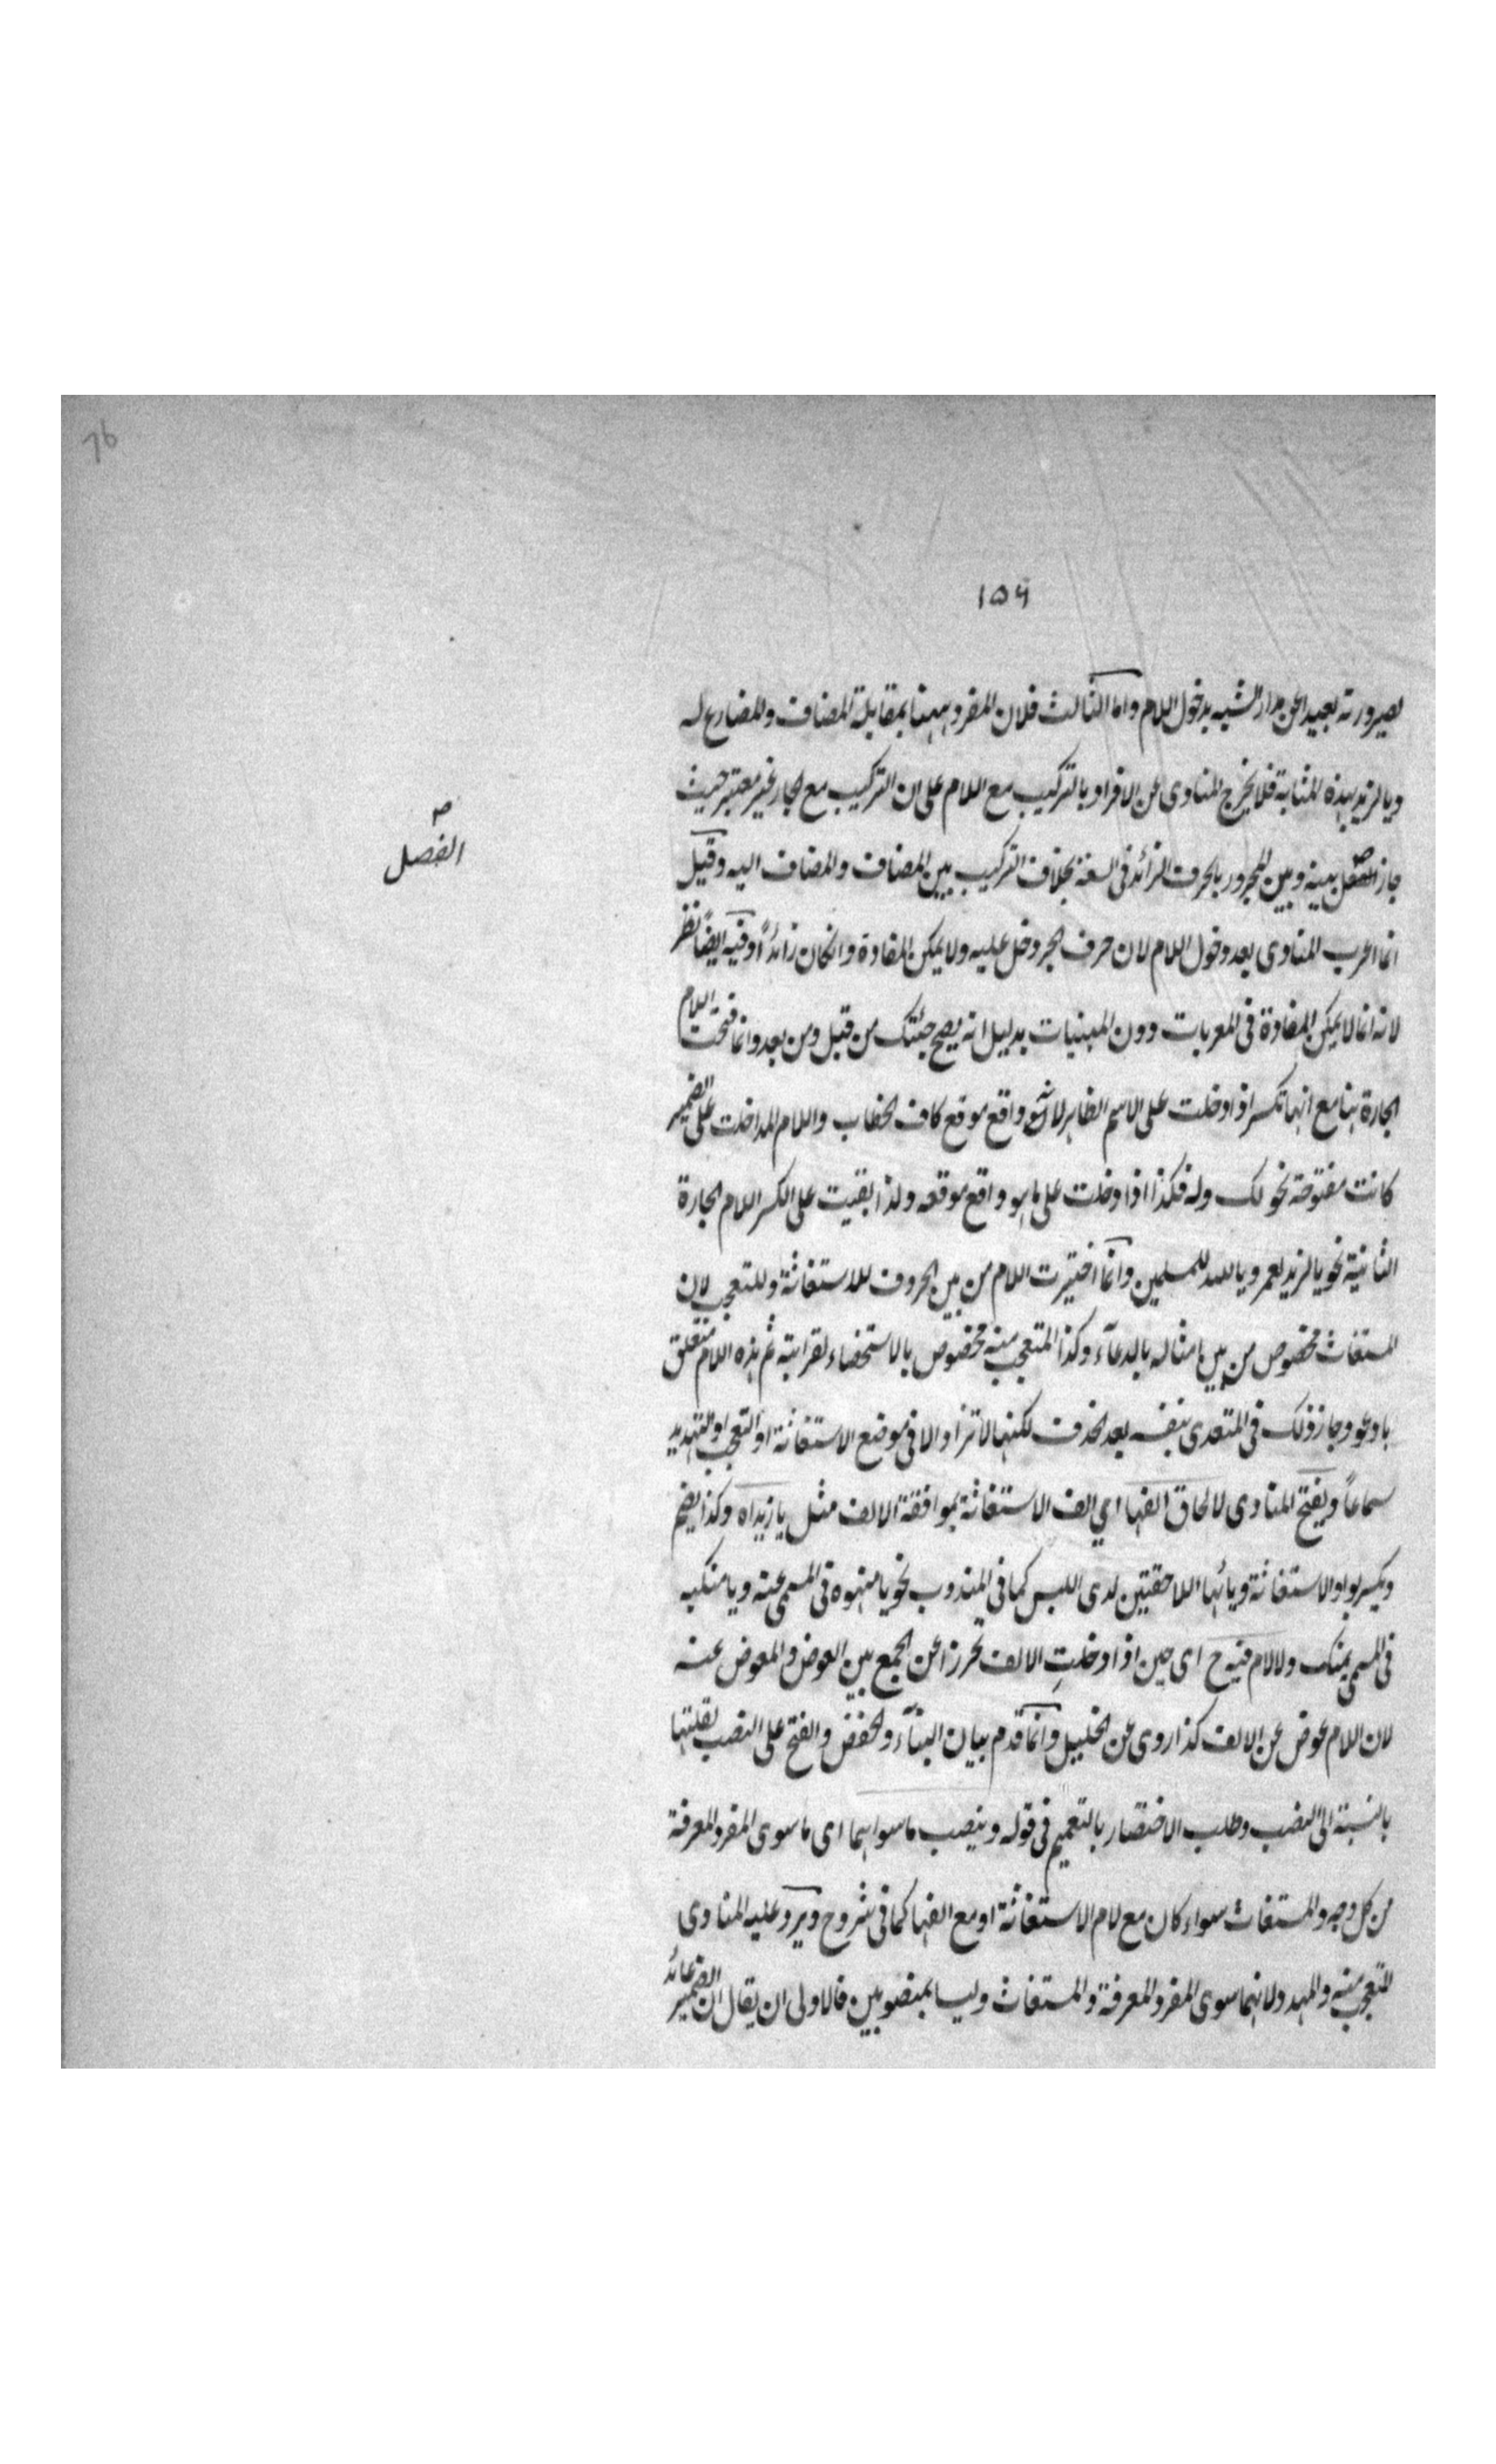 76
١٥٩
لصيرورته بعيدا عن مدار الشبه بدخول اللام واما الثالث فلان المفرد ههنا بمقابلة المضاف وللمضارع له
ويالزيد بهذه المثابة فلا يخرج المنادى عن الافراد بالتركيب مع اللام على ان التركيب مع الجار غير معتبر حيث
جاز الفصل بينه وبين المجرور بالحرف الزائد فى السعة بخلاف التركيب بين المضاف والمضاف اليه وقيل
صه
الفصل
انما اعرب المنادى بعد دخول اللام لان حرف الجر دخل عليه ولا يمكن الغاؤه وانكان زائدًا وفيه ايضًا نظر
لانه انما لا يمكن الغاؤه فى المعربات دون المبنيات بدليل انه يصح جئتك من قبل ومن بعد وانما فتحت اللام
الجارة هنا مع انها تكسر اذا دخلت على الاسم الظاهر لانه واقع موقع كاف الخطاب واللام اذا دخلت على الضمير
كانت مفتوحة نحو لك وله فكذا اذا دخلت على ما هو واقع موقعه ولذا بقيت على الكسر اللام الجارة
الثانية نحو يالزيد لعمرو يا لله للمسلمين وانما اختيرت اللام من بين الحروف للاستغاثة وللتعجب لان
المستغاث مخصوص من بين امثاله بالدعآء وكذا المتعجب منه مخصوص بالاستحضاء لغرابته ثم هذه اللام متعلق
بادعو وجاز ذلك فى المتعدى بنفسه بعد الحذف لكنها لا تزاد الا فى موضع الاستغاثة او التعجب او التهديد
سماعاً ويفتح المنادى لالحاق الفها اي الف الاستغاثة بموافقة الالف مثل يا زيداه وكذا يضم
ويكسر بواو الاستغاثة ويائها اللاحقتين لدى اللبس كما فى المندوب نحو يا منهوه فى المسمى عنه ويا منكيه
فى المسمى بمنك ولا لام فيه ح اى حين اذا دخلتِ الالف تحرزا عن الجمع بين العوض والمعوض عنه
لان اللام عوض عن الالف كذا روى عن الخليل وانما قدم بيان البنآء والخفض والفتح على النصب لقلتها
بالنسبة الى النصب وطلب الاختصار بالتعميم فى قوله وينصب ما سواهما اى ما سوى المفرد المعرفة
من كل وجه والمستغاث سواء كان مع لام الاستغاثة او مع الفها كما فى شروح ويرد عليه المنادى
المتعجب منه والمهدد لانهما سوى المفرد المعرفة والمستغاث وليسا بمنصوبين فالاولى ان يقال ان الضمير عائد